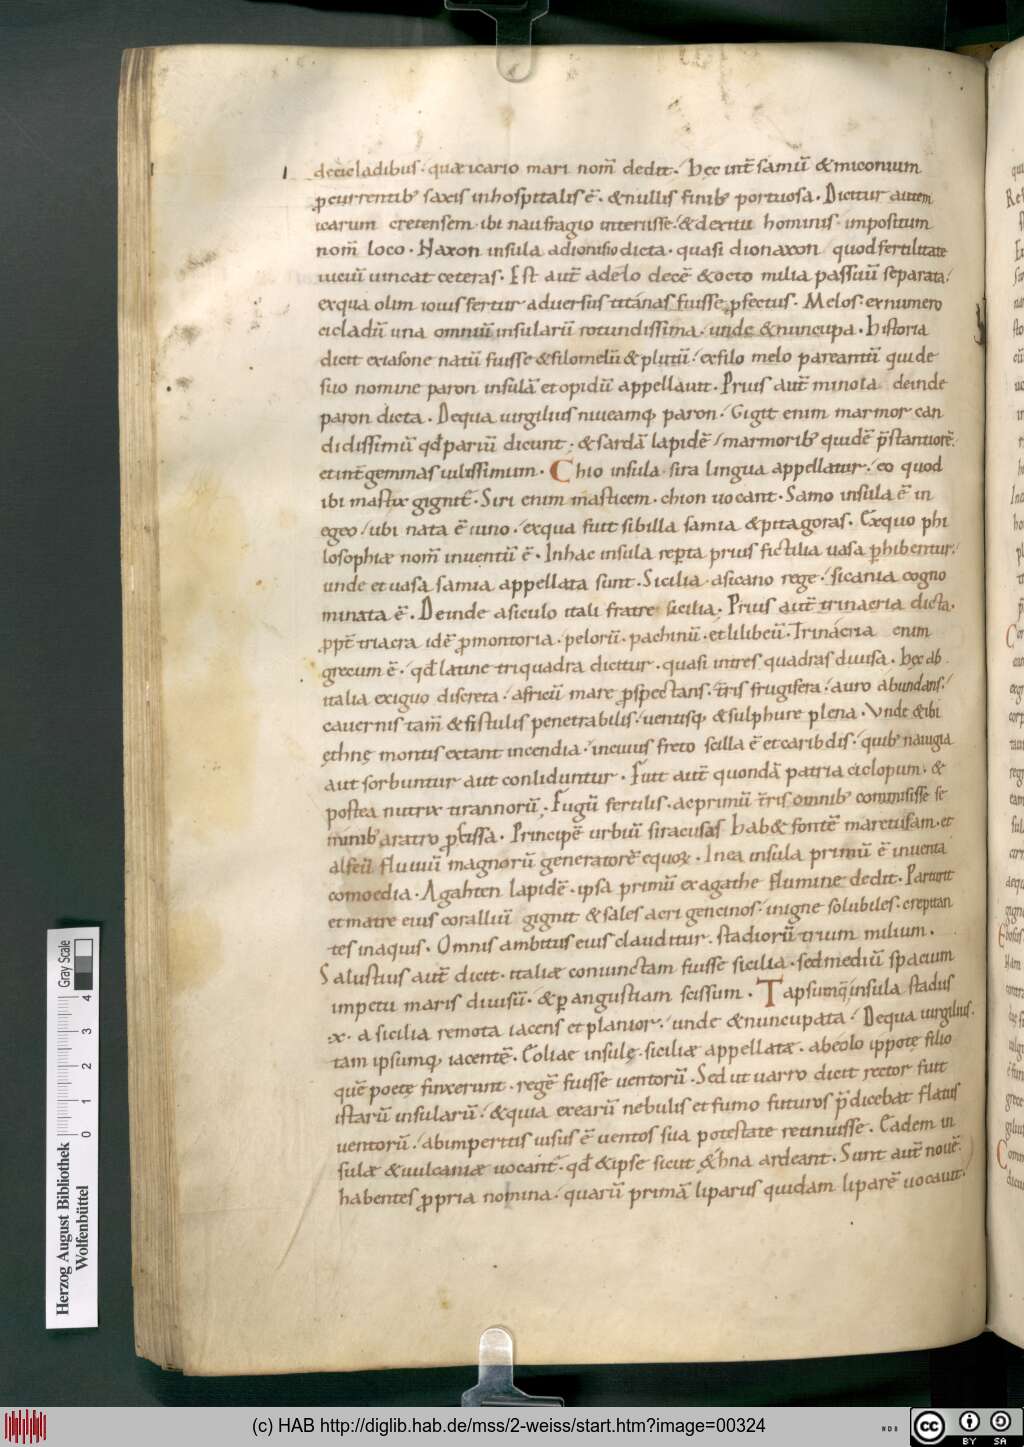 decicladibus. quæ icario mari nom̄ dedit. Hęc int̄ samū & miconium
ꝑcurrentib; saxis inhospitalis ē. & nullis finib; portuosa. Dicitur autem
icarum cretensem ibi naufragio interiisse. & deexitu hominis impositum
nom̄ loco. Naxon insula adionisio dicta. quasi dionaxon quod fertilitate
uitiū uincat ceteras. Est aut̄ adelo decē & octo milia passuū separata.
exqua olim iouis fertur aduersus titanas fuisse ꝓfectus. Melos exnumero
cicladū una omniū insularū rotundissima. unde & nuncupa. Historia
dicit exiasone natū fuisse & filomelū & plutū. exfilo melo pareantū qui de
suo nomine paron insulā et opidū appellauit. Prius aut̄ minoia deinde
paron dicta. Dequa uirgilius niueamq; paron. Gigit enim marmor can
didissimū qđ pariū dicunt. & sardā lapidē marmorib; quidē p̄stantiorē.
et int̄ gemmas uilissimum. Chio insula sira lingua appellatur. eo quod
ibi mastix gignit̄. Siri enim masticem chion uocant. Samo insula ē in
egeo ubi nata ē iuno. exqua fuit sibilla samia & pitagoras. Exquo phi
losophiæ nom̄ inuentū ē. Inhac insula reꝑta prius fictilia uasa ꝑhibentur.
unde et uasa samia appellata sunt. Sicilia asicano rege. sicania cogno
minata ē. Deinde asiculo itali fratre sicilia. Prius aut̄ trinacria dicta.
ꝓpt̄ triacra idē ꝓmontoria. pelorū. pachinū. et lilibeū. Trinacria enim
grecum ē. qđ latine triquadra dicitur. quasi intres quadras diuisa. Hęc ab
italia exiguo discreta. africū mare ꝓspectans. t̄ris frugifera. auro abundans.
cauernis tam̄ & fistulis penetrabilis. uentisq; & sulphure plena. Vnde & ibi
ęthnę montis extant incendia. incuius freto scilla ē et caribdis. quib; nauigia
aut sorbuntur aut conliduntur. Fuit aut̄ quondā patria ciclopum. &
postea nutrix tirannorū. Frugū fertilis. ac primū t̄ris omnib; commisisse se
minib; aratro ꝓscissa. Principē urbiū siracusas hab& fontē maretusam. et
alfeū fluuiū magnorū generatorē equoꝝ. Inea insula primū ē inuenta
comoedia. Agahten lapidē. ipsa primū exagathe flumine dedit. Parturit
et matre eius coralliū gignit & sales acri gencinos. inigne solubiles. crepitan
tes inaquis. Omnis ambitus eius clauditur. stadiorū trium milium.
Salustius aut̄ dicit. italiæ coniunctam fuisse sicilia. sed mediū spacium
impetu maris diuisū. & ꝑ angustiam scissum. Tapsumq; insula stadiis
.x. a sicilia remota iacens et planior. unde & nuncupata. Dequa uirgilius.
tam ipsumq; iacentē. Eoliae insulę. siciliæ appellatæ. abeolo ippotę filio
quē poetę finxerunt. regē fuisse uentorū. Sed ut uarro dicit rector fuit
istarū insularū. & quia exearū nebulis et fumo futuros p̄dicebat flatus
uentorū. abimperitis uisus ē uentos sua potestate retinuisse. Eadem in
sulæ & uulcaniæ uocant̄. qđ & ipse sicut & ęthna ardeant. Sunt aut̄ nouē.
habentes ꝓpria nomina. quarū primā liparus quidam liparē uocauit.
Herzog August Bibliothek
Wolfenbüttel
0 1 2 3 4
Gray Scale
(c) HAB http://diglib.hab.de/mss/2-weiss/start.htm?image=00324
cc BY SA